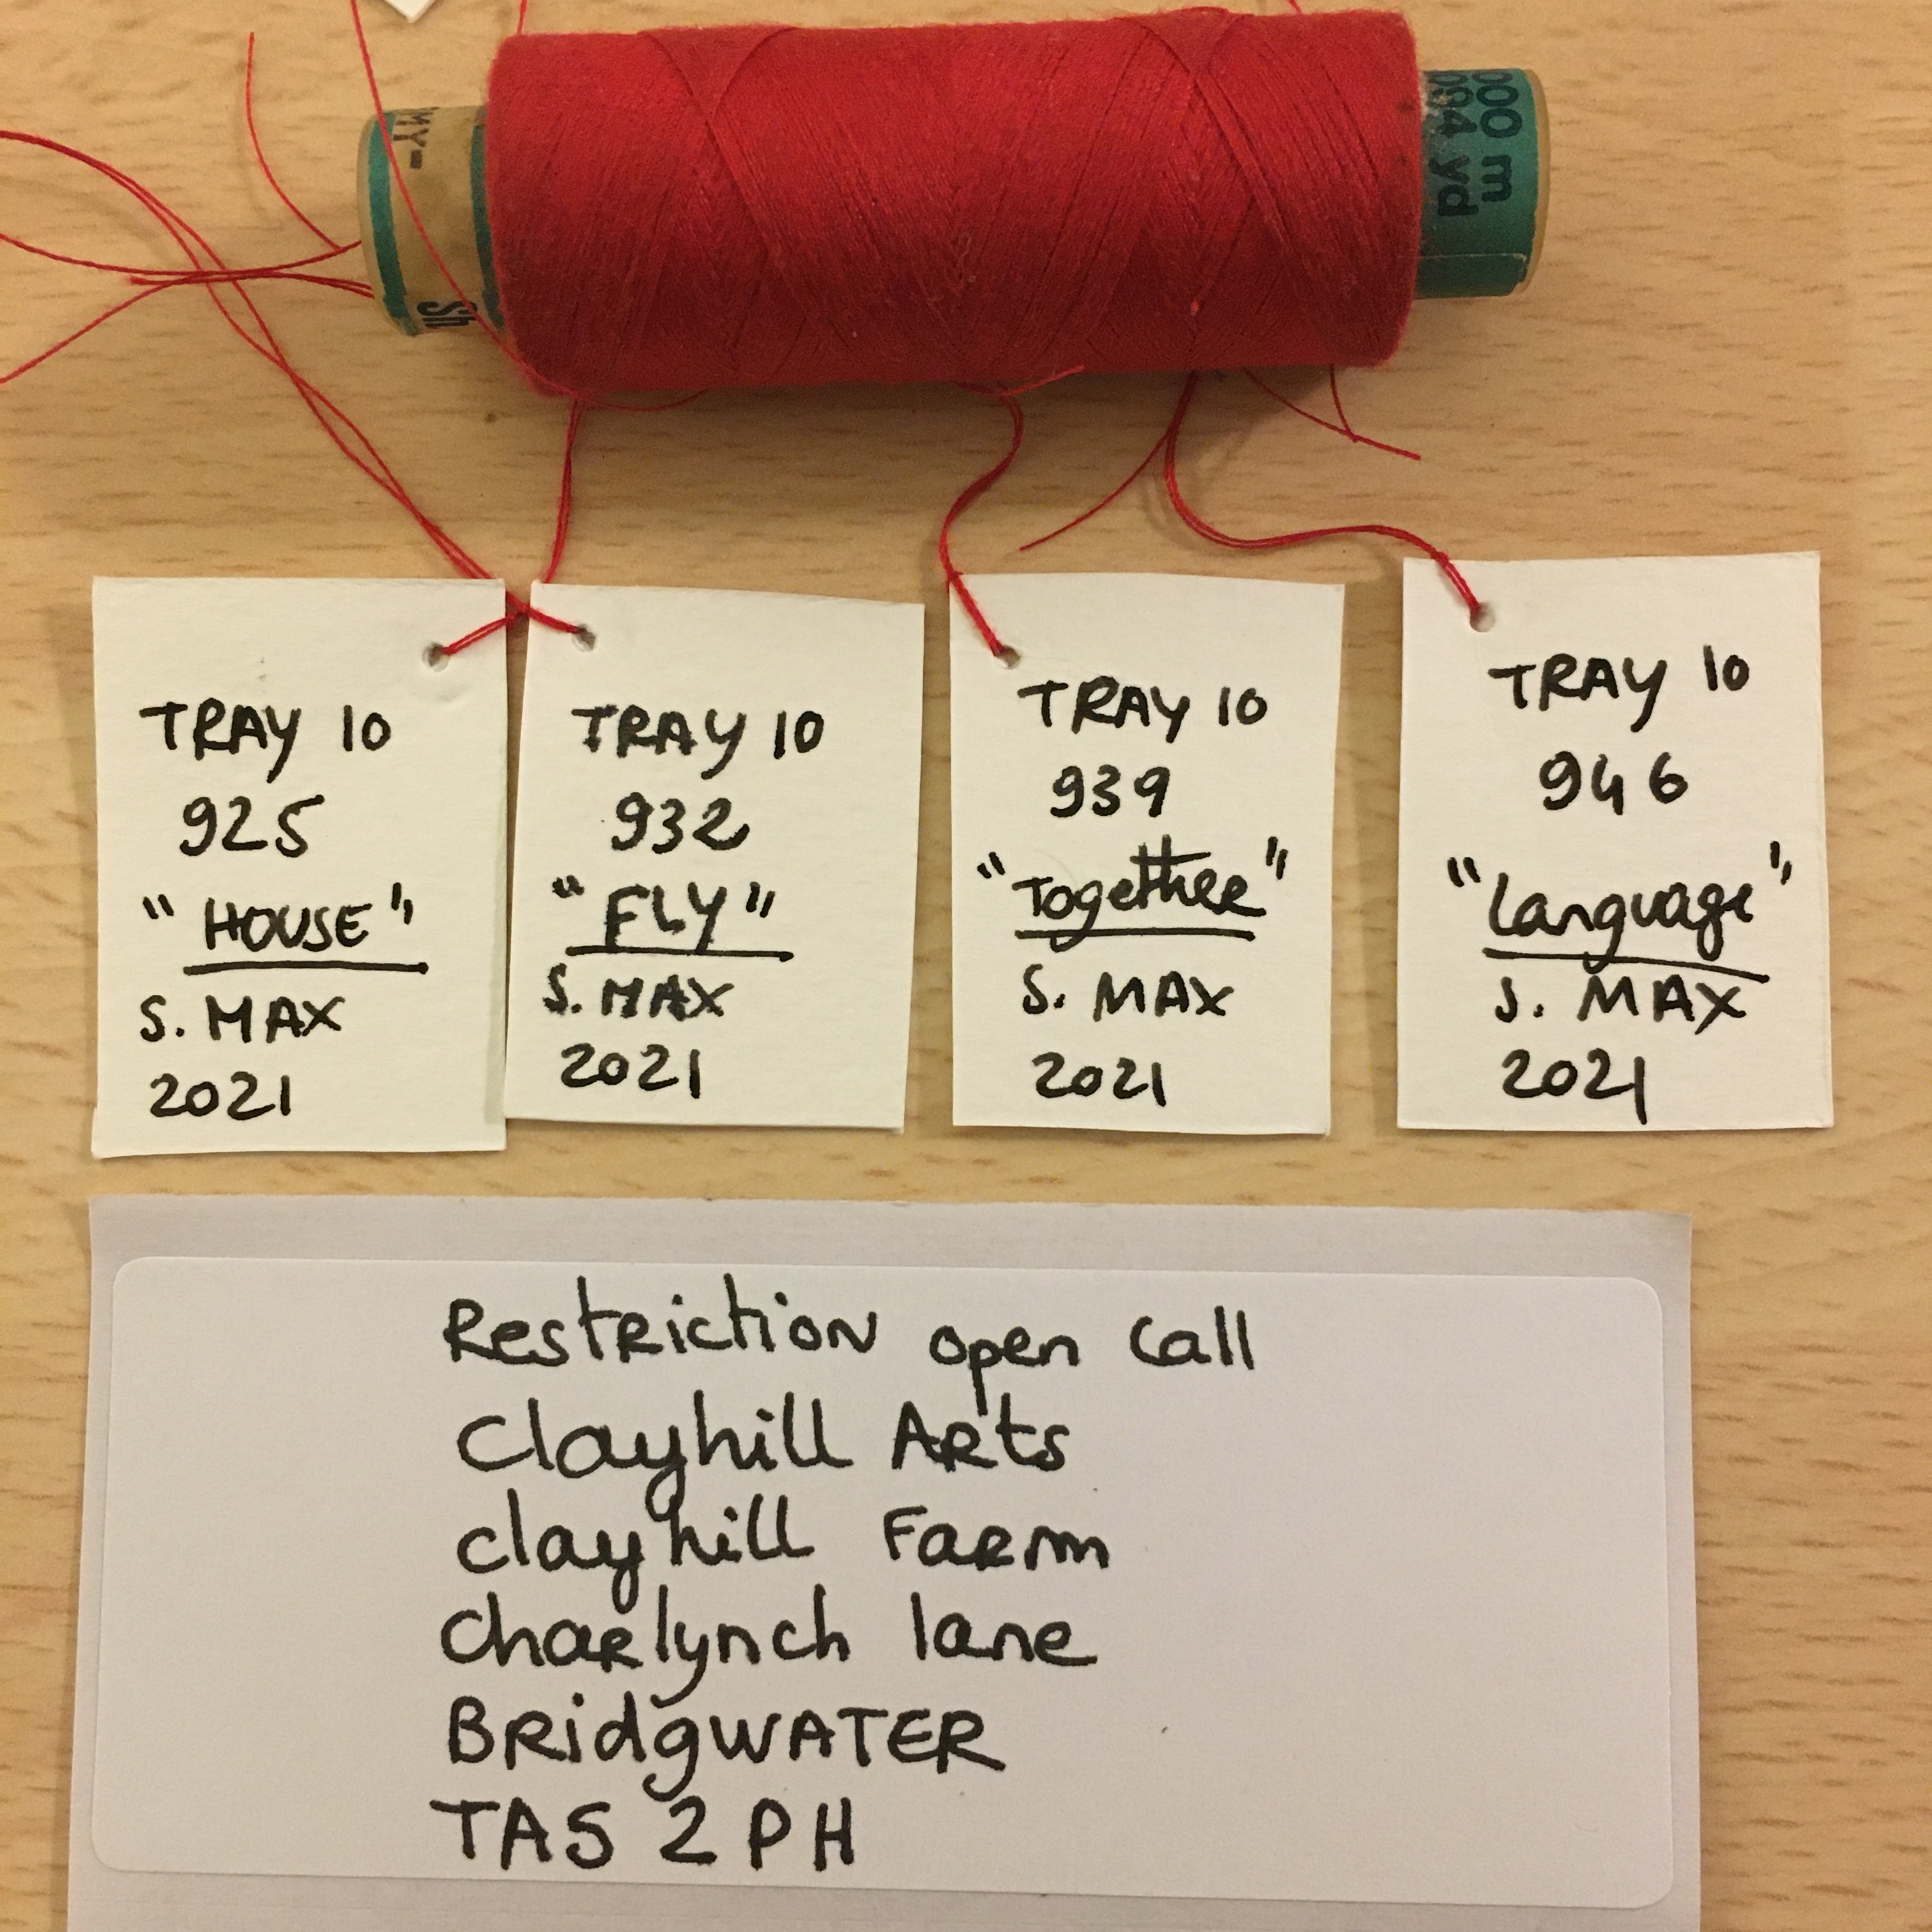 MY-
Sh
000 m
094 yd
TRAY 10
925
"HOUSE"
S. MAX
2021
TRAY 10
932
"FLY"
S. MAX
2021
TRAY 10
939
"Together"
S. MAX
2021
TRAY 10
946
"Language"
S. MAX
2021
Restriction open call
Clayhill Arts
clayhill Farm
Charlynch lane
BRidgWATER
TA5 2PH